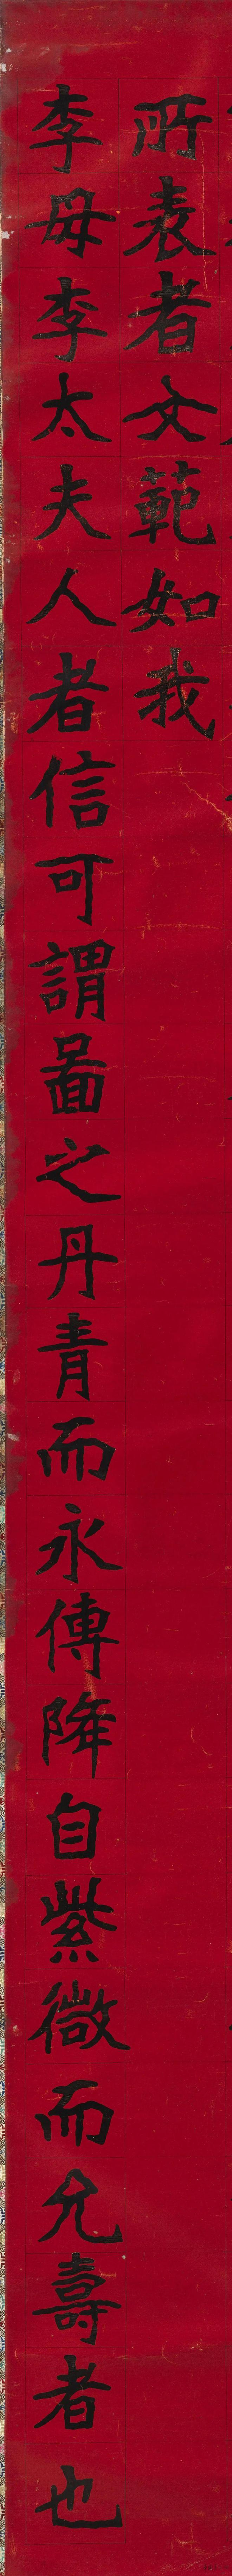 所表者文範如我
李母李太夫人者信可謂啚之丹青而永傳降自紫微而允壽者也